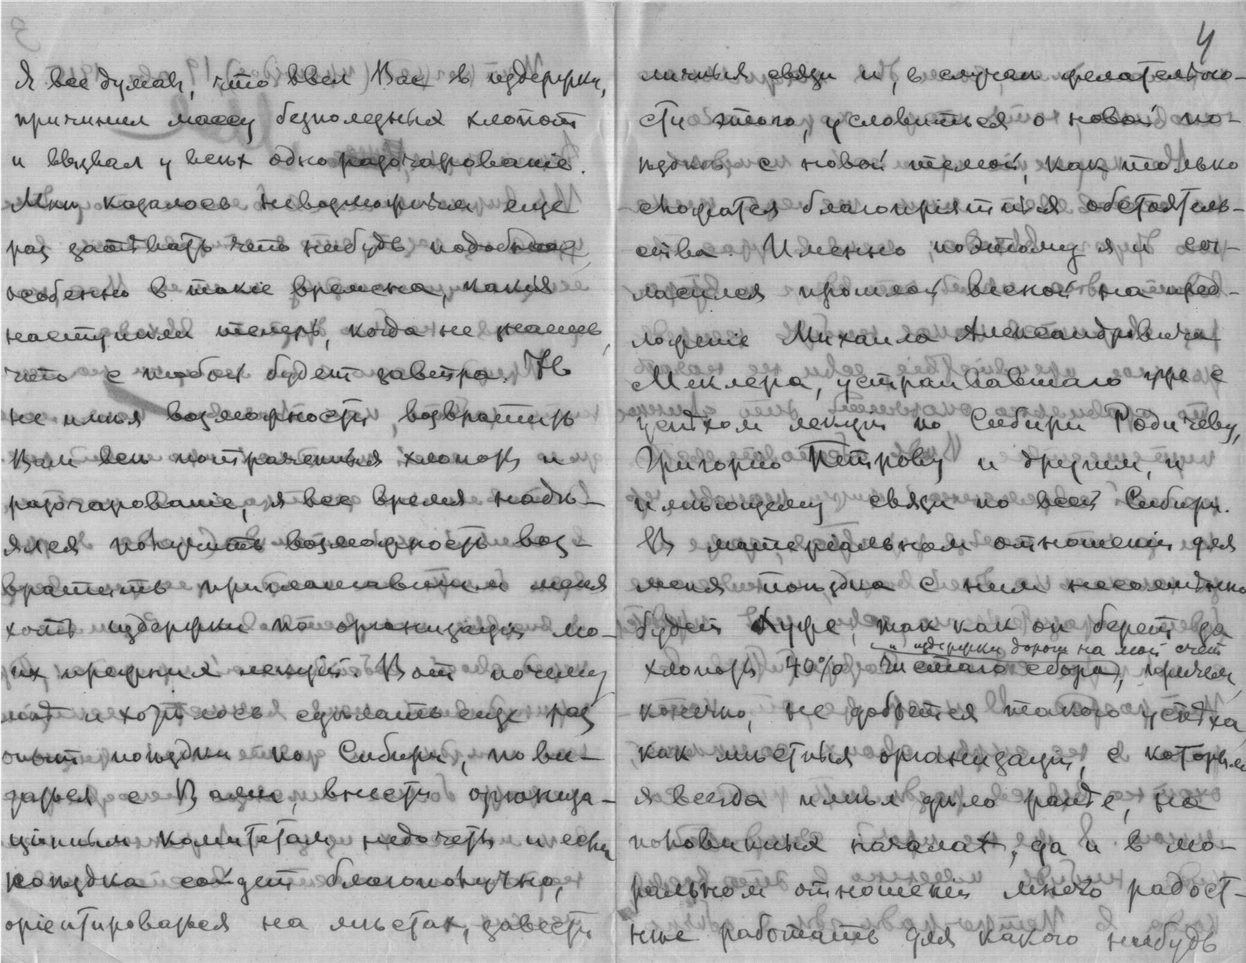 Я все думал, что ввел Вас в издержки,
причинил массу бесполезных хлопот
и вызвал у всех одно разочарование.
Мне казалось невозможным еще
раз затевать что нибудь подобное,
особенно в такие времена, какия
наступили теперь, когда не знаешь,
что с тобой будет завтра. Но
не имея возможности возвратить
Вам всех потраченных хлопот и
разочарование, я все время надѣ-
ялся получить возможность воз-
вратить приглашавшим меня
хоть издержки по организации мо-
их прежних лекций. Вот почему
мнѣ и хотѣлось сдѣлать еще раз
опыт поѣздки по Сибири, пови-
даться с Вами, внести организа-
ціонным комитетам недочеты и если
поѣздка сойдет благополучно,
оріентироваться на мѣстах, завести
4
личныя связи и, в случаѣ желательно-
сти этого, условиться о новой по-
ѣздкѣ с новой темой, как только
сложатся благопріятныя обстоятель-
ства. Именно поэтому я и сог-
ласился прошлой весной на пред-
ложеніе Михаила Александровича
Меклера, устраивавшаго уже с
успѣхом лекции по Сибири Родичеву,
Григорію Петрову и другим, и
имѣющему связи по всей Сибири.
В матеріальном отношеніи для
меня поѣздка с ним несомнѣнно
будет хуже, так как он берет за
и издержки дорог на мой счет
хлопоты 40% чистаго сбора, причем,
конечно, не добьется такого успѣха,
как мѣстныя организации, с которыми
я всегда имѣл дѣло ранѣе, на
половинных началах, да и в мо-
ральном отношеніи много радост-
нѣе работать для какого нибудь